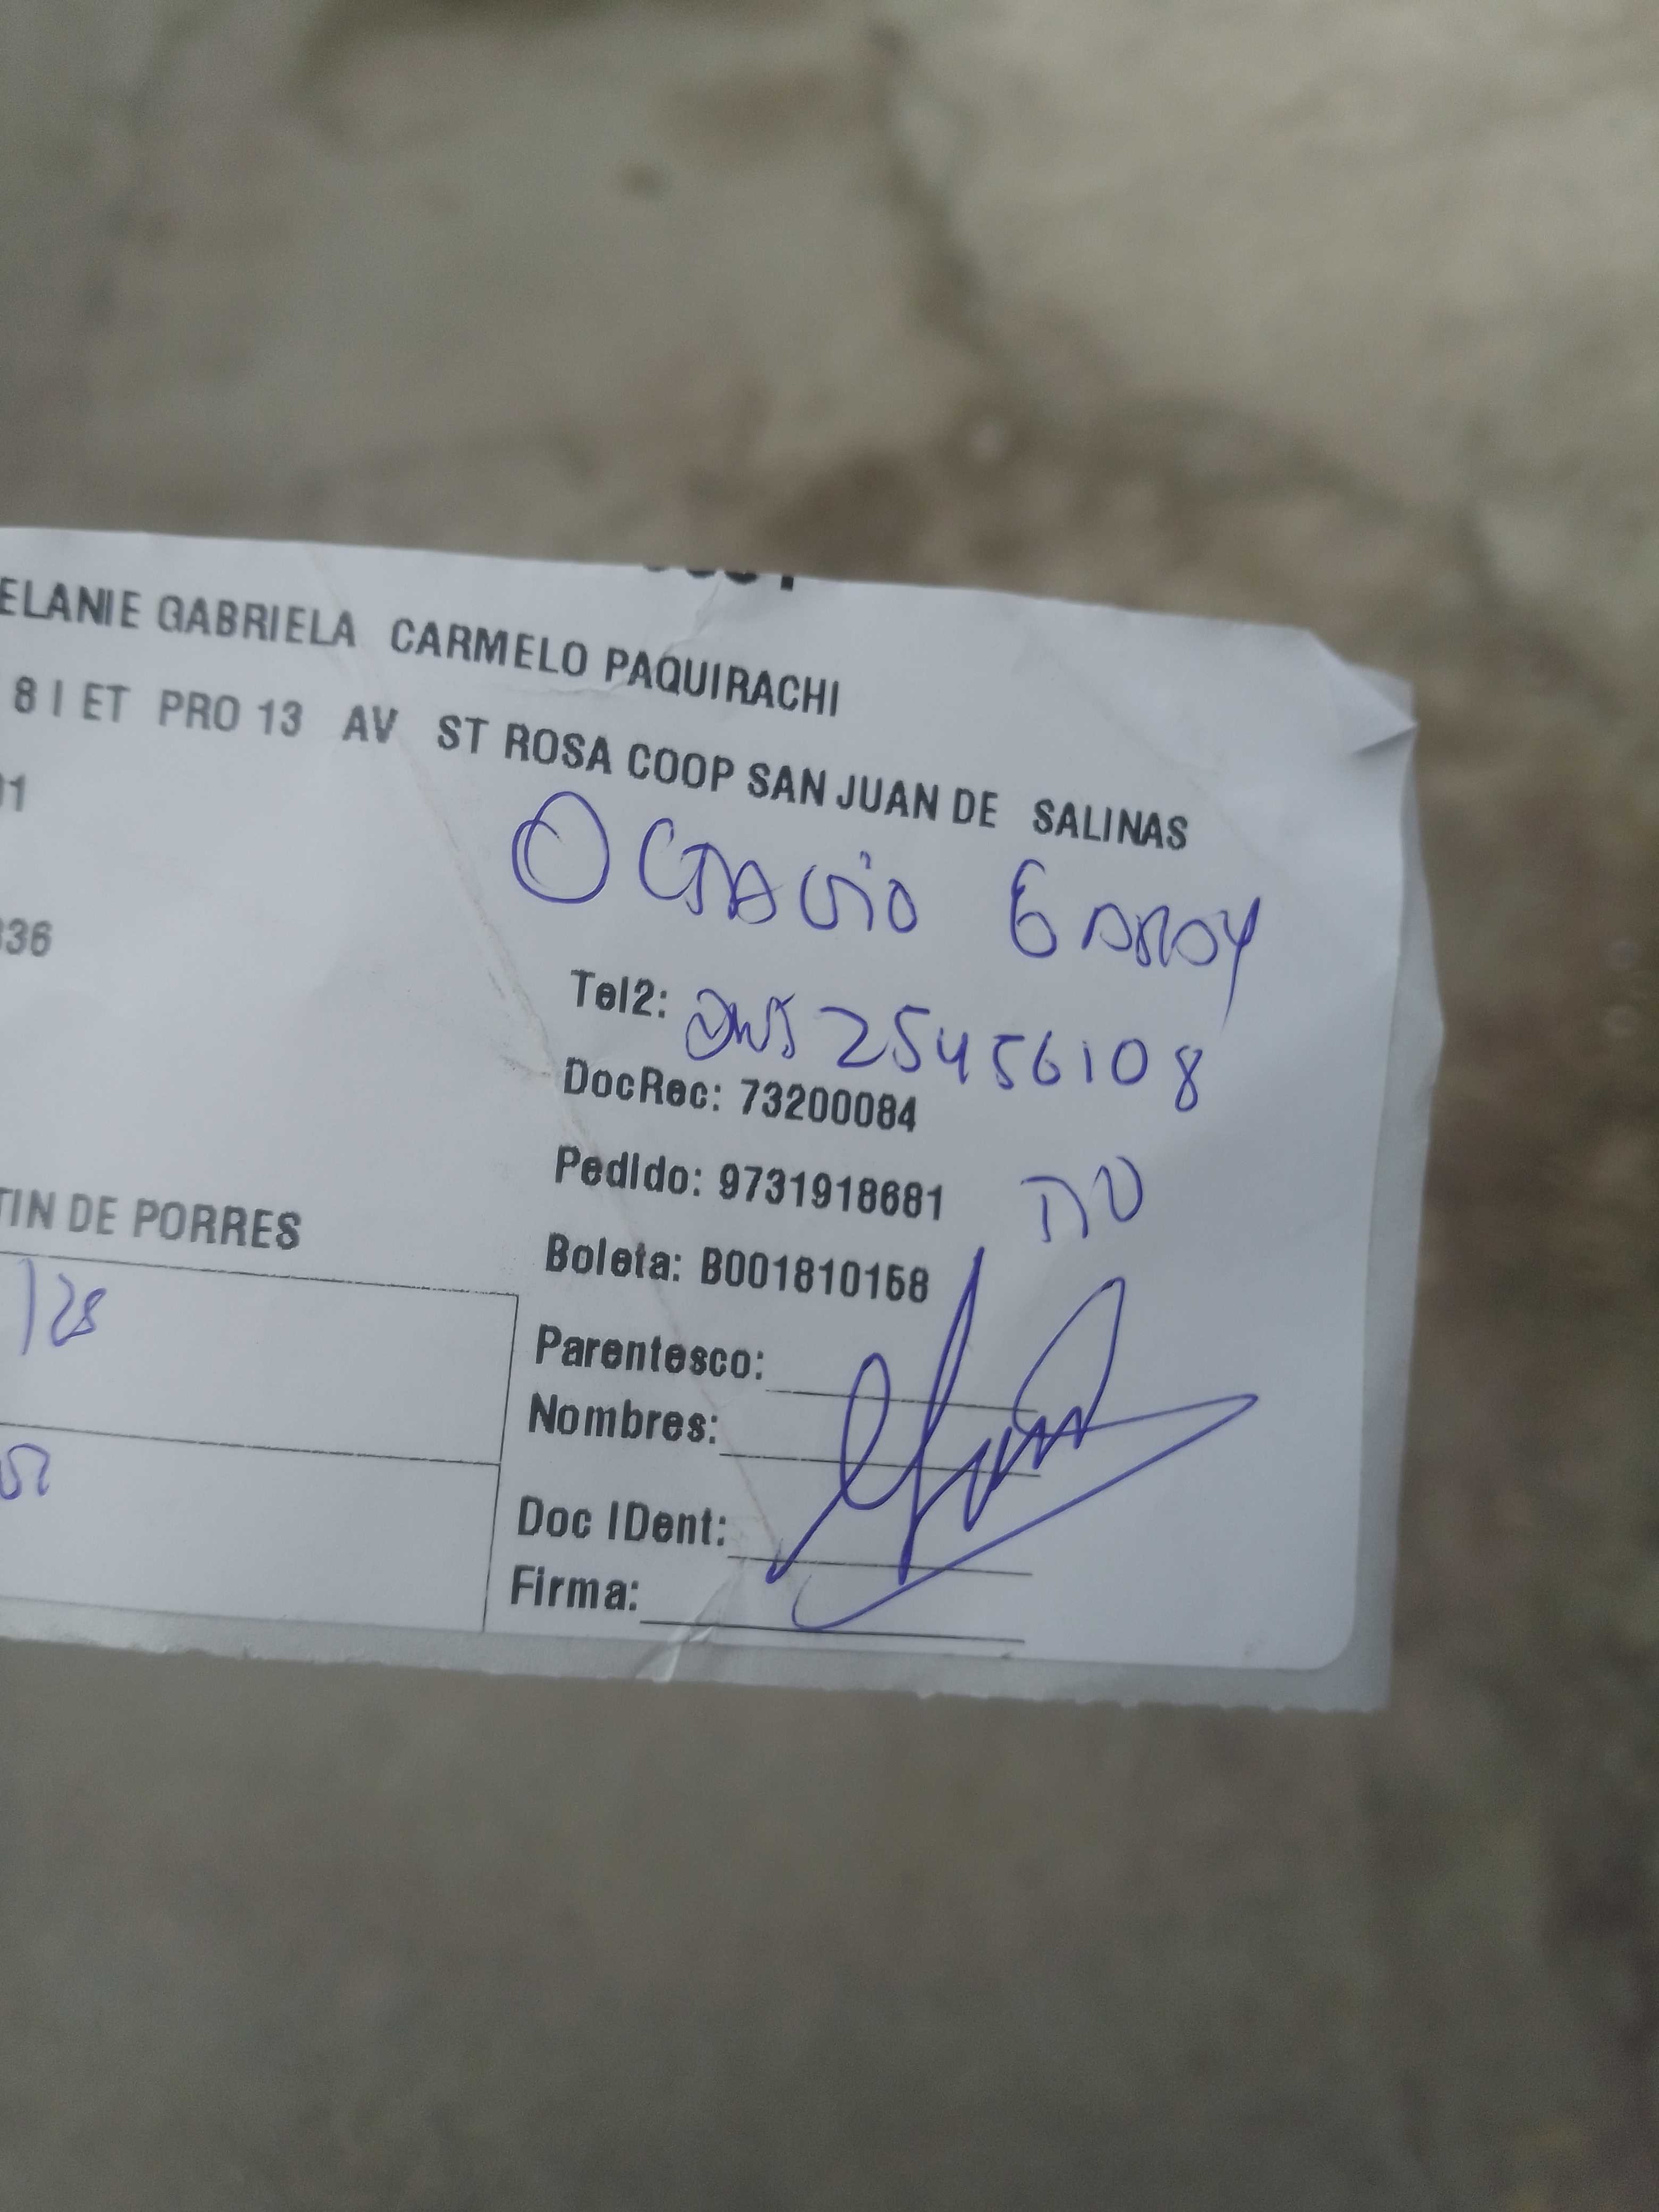 ELANIE GABRIELA CARMELO PAQUIRACHI
8 I ET PRO 13 AV ST ROSA COOP SAN JUAN DE SALINAS
01
OCTAVIO GARAY
336
Tel2: DNI 25456108
DocRec: 73200084
Pedido: 9731918681
TIN DE PORRES
Boleta: B001810158
128
Parentesco:
Nombres:
Doc IDent:
Firma: